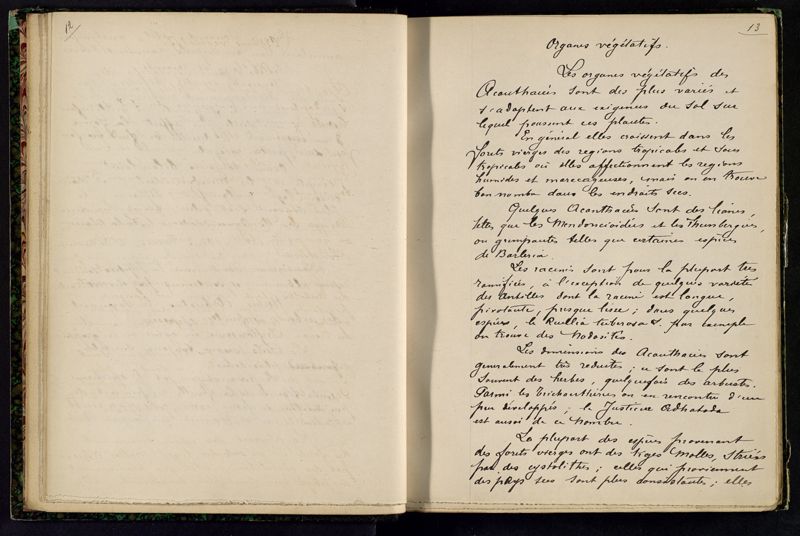 12
13
Organes végétatifs.
Les organes végétatifs des
Acanthacées sont des plus variés et
s'adaptent aux exigences du sol sur
lequel poussent ces plantes.
En général elles croissent dans les
forets vierges des regions tropicales et sous
tropicales où elles affectionnent les regions
humides et marecageuses, mais on en trouve
bon nombre dans les endroits secs.
Quelques Acanthacées sont des lianes,
telles que les Mendoncioidées et les Thunbergiées,
ou grimpantes telles que certaines espèces
de Barleria.
Les racines sont pour la plupart très
ramifiées, à l'exception de quelques variétés
des Antilles dont la racine est longue,
pivotante, presque lisse; dans quelques
espèces, le Ruellia tuberosa L. par exemple
on trouve des nodosités.
Les dimensions des Acanthacées sont
generalement très reduites; ce sont le plus
souvent des herbes, quelquefois des arbustes.
Parmi les Trichanthérées on en rencontre d'un
peu développés; le Justicia Adhatoda
est aussi de ce nombre.
La plupart des espèces provenant
des forets vierges ont des tiges molles, striées
par des cystolithes; celles qui proviennent
des pays secs sont plus consistantes; elles